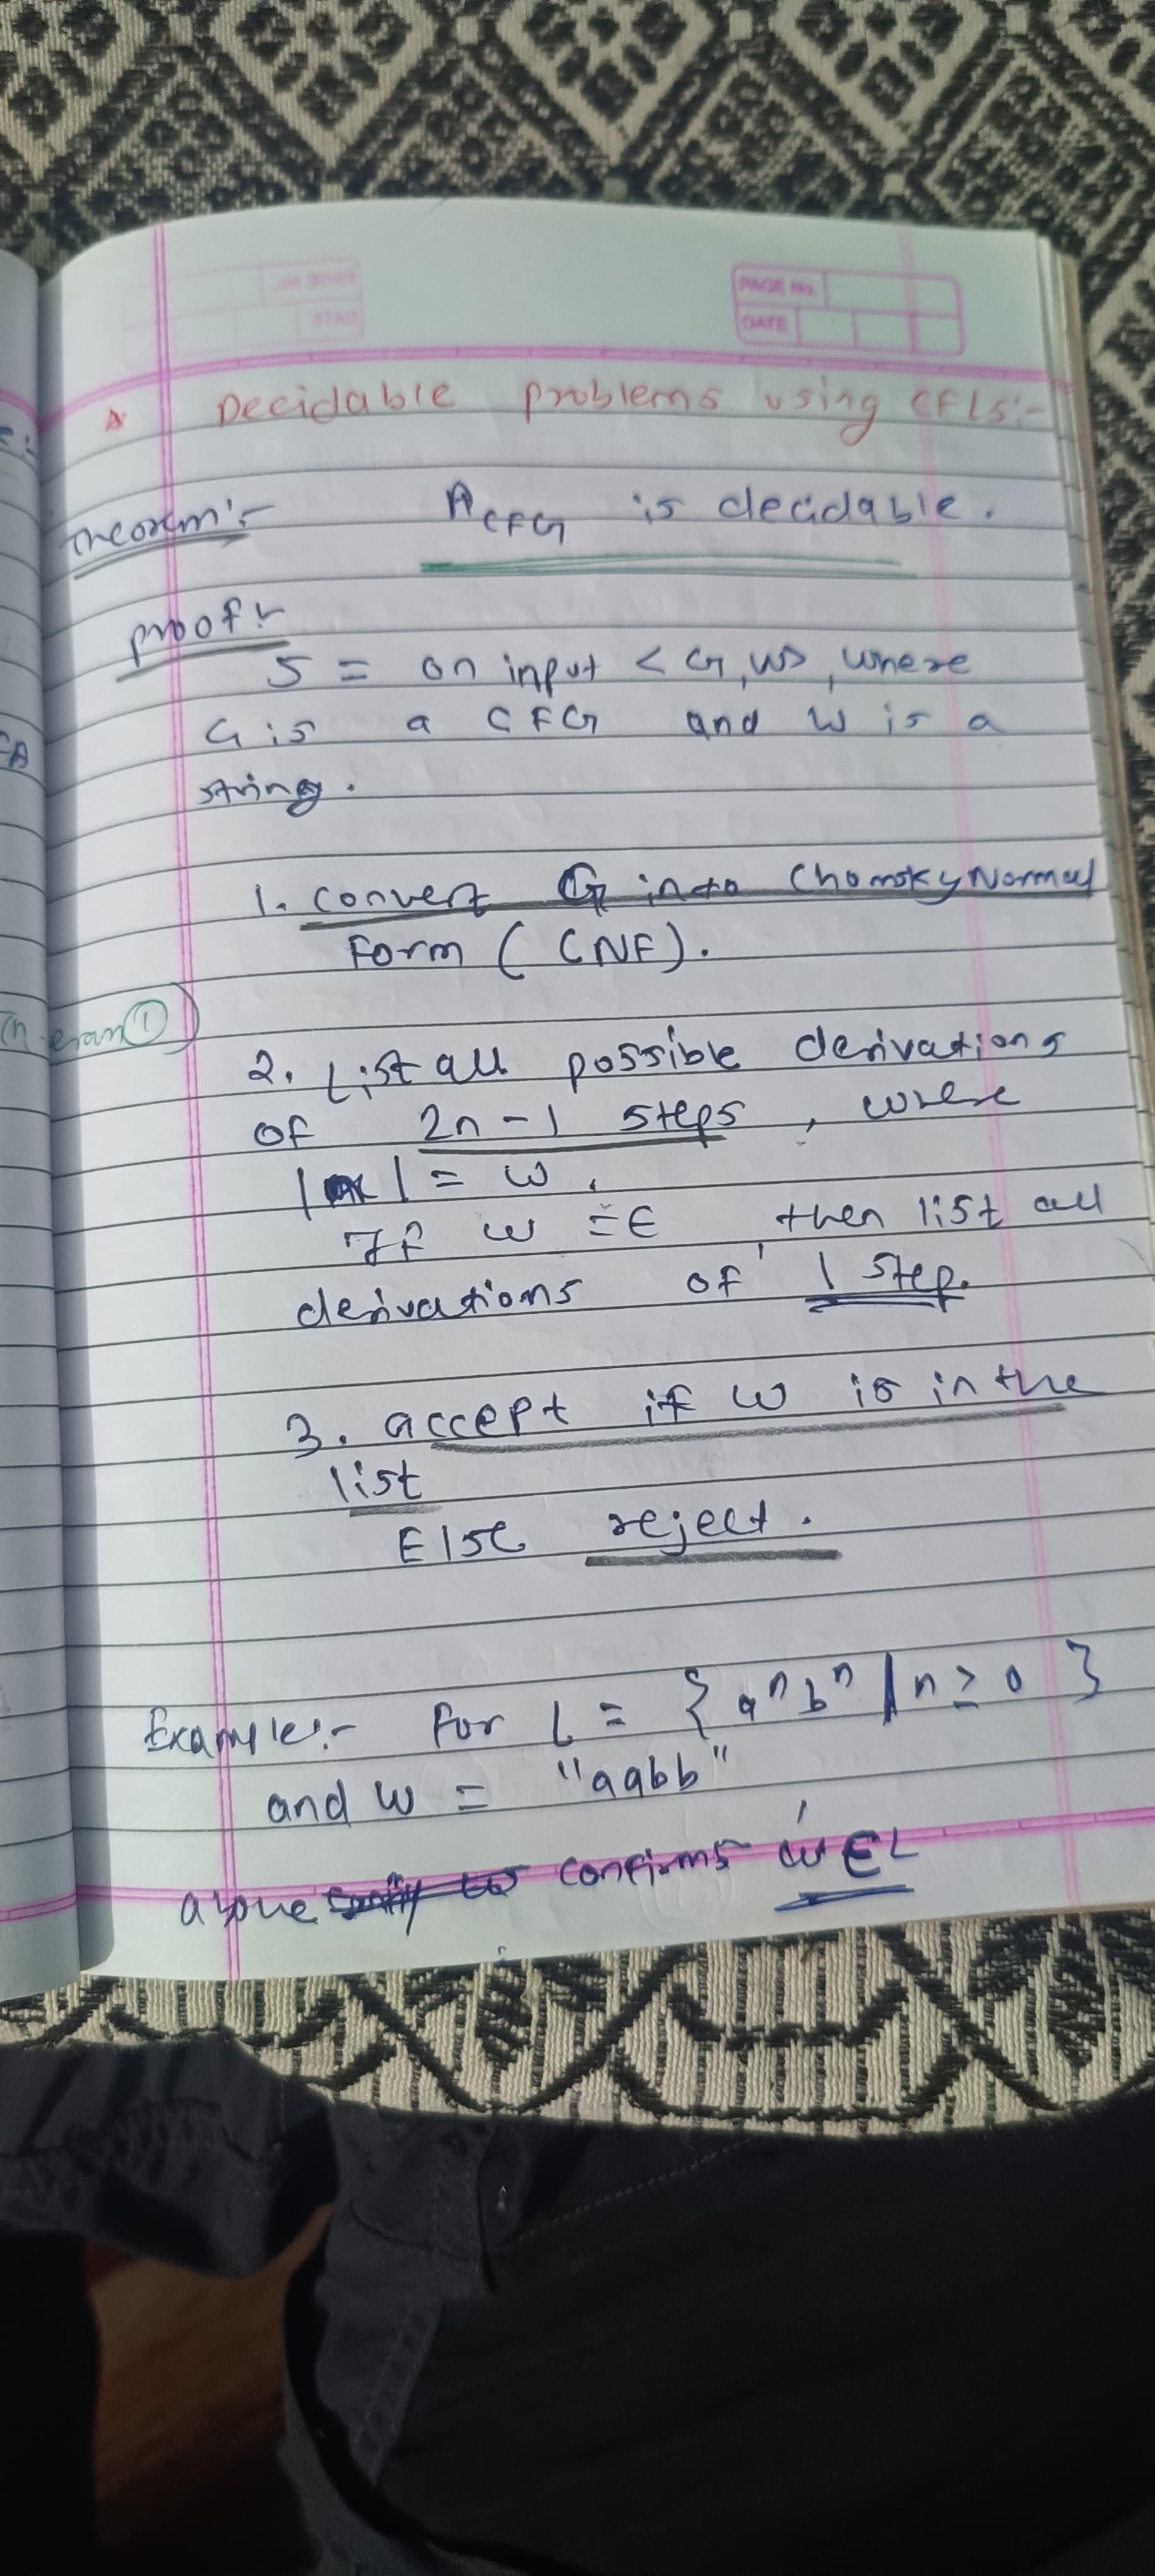 PAGE No.
DATE
Decidable problems using CFLs:-
Theorem:- A CFG is decidable.
proof:-
S = on input < G, W>, where
G is a CFG and W is a
string.
1. convert G into Chomsky Normal
Form ( CNF).
2. List all possible derivations
of 2n-1 steps, where
| | = w.
If w = ε, then list all
derivations of 1 step.
3. accept if w is in the
list
Else reject.
Example:- For L = { aⁿbⁿ | n ≥ 0 }
and w = "aabb"
above confirms w ∈ L